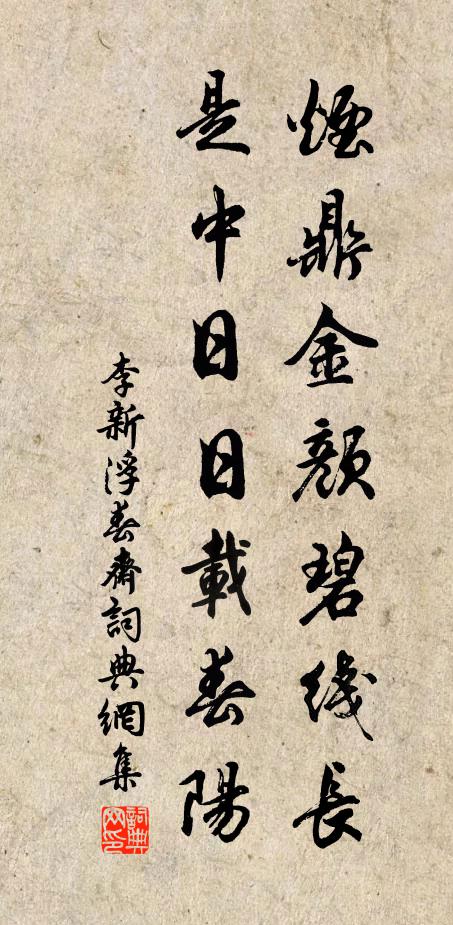 煙鼎金顏碧线長
是中日日載春陽
李新浮春齋詞典網集
詞典网印